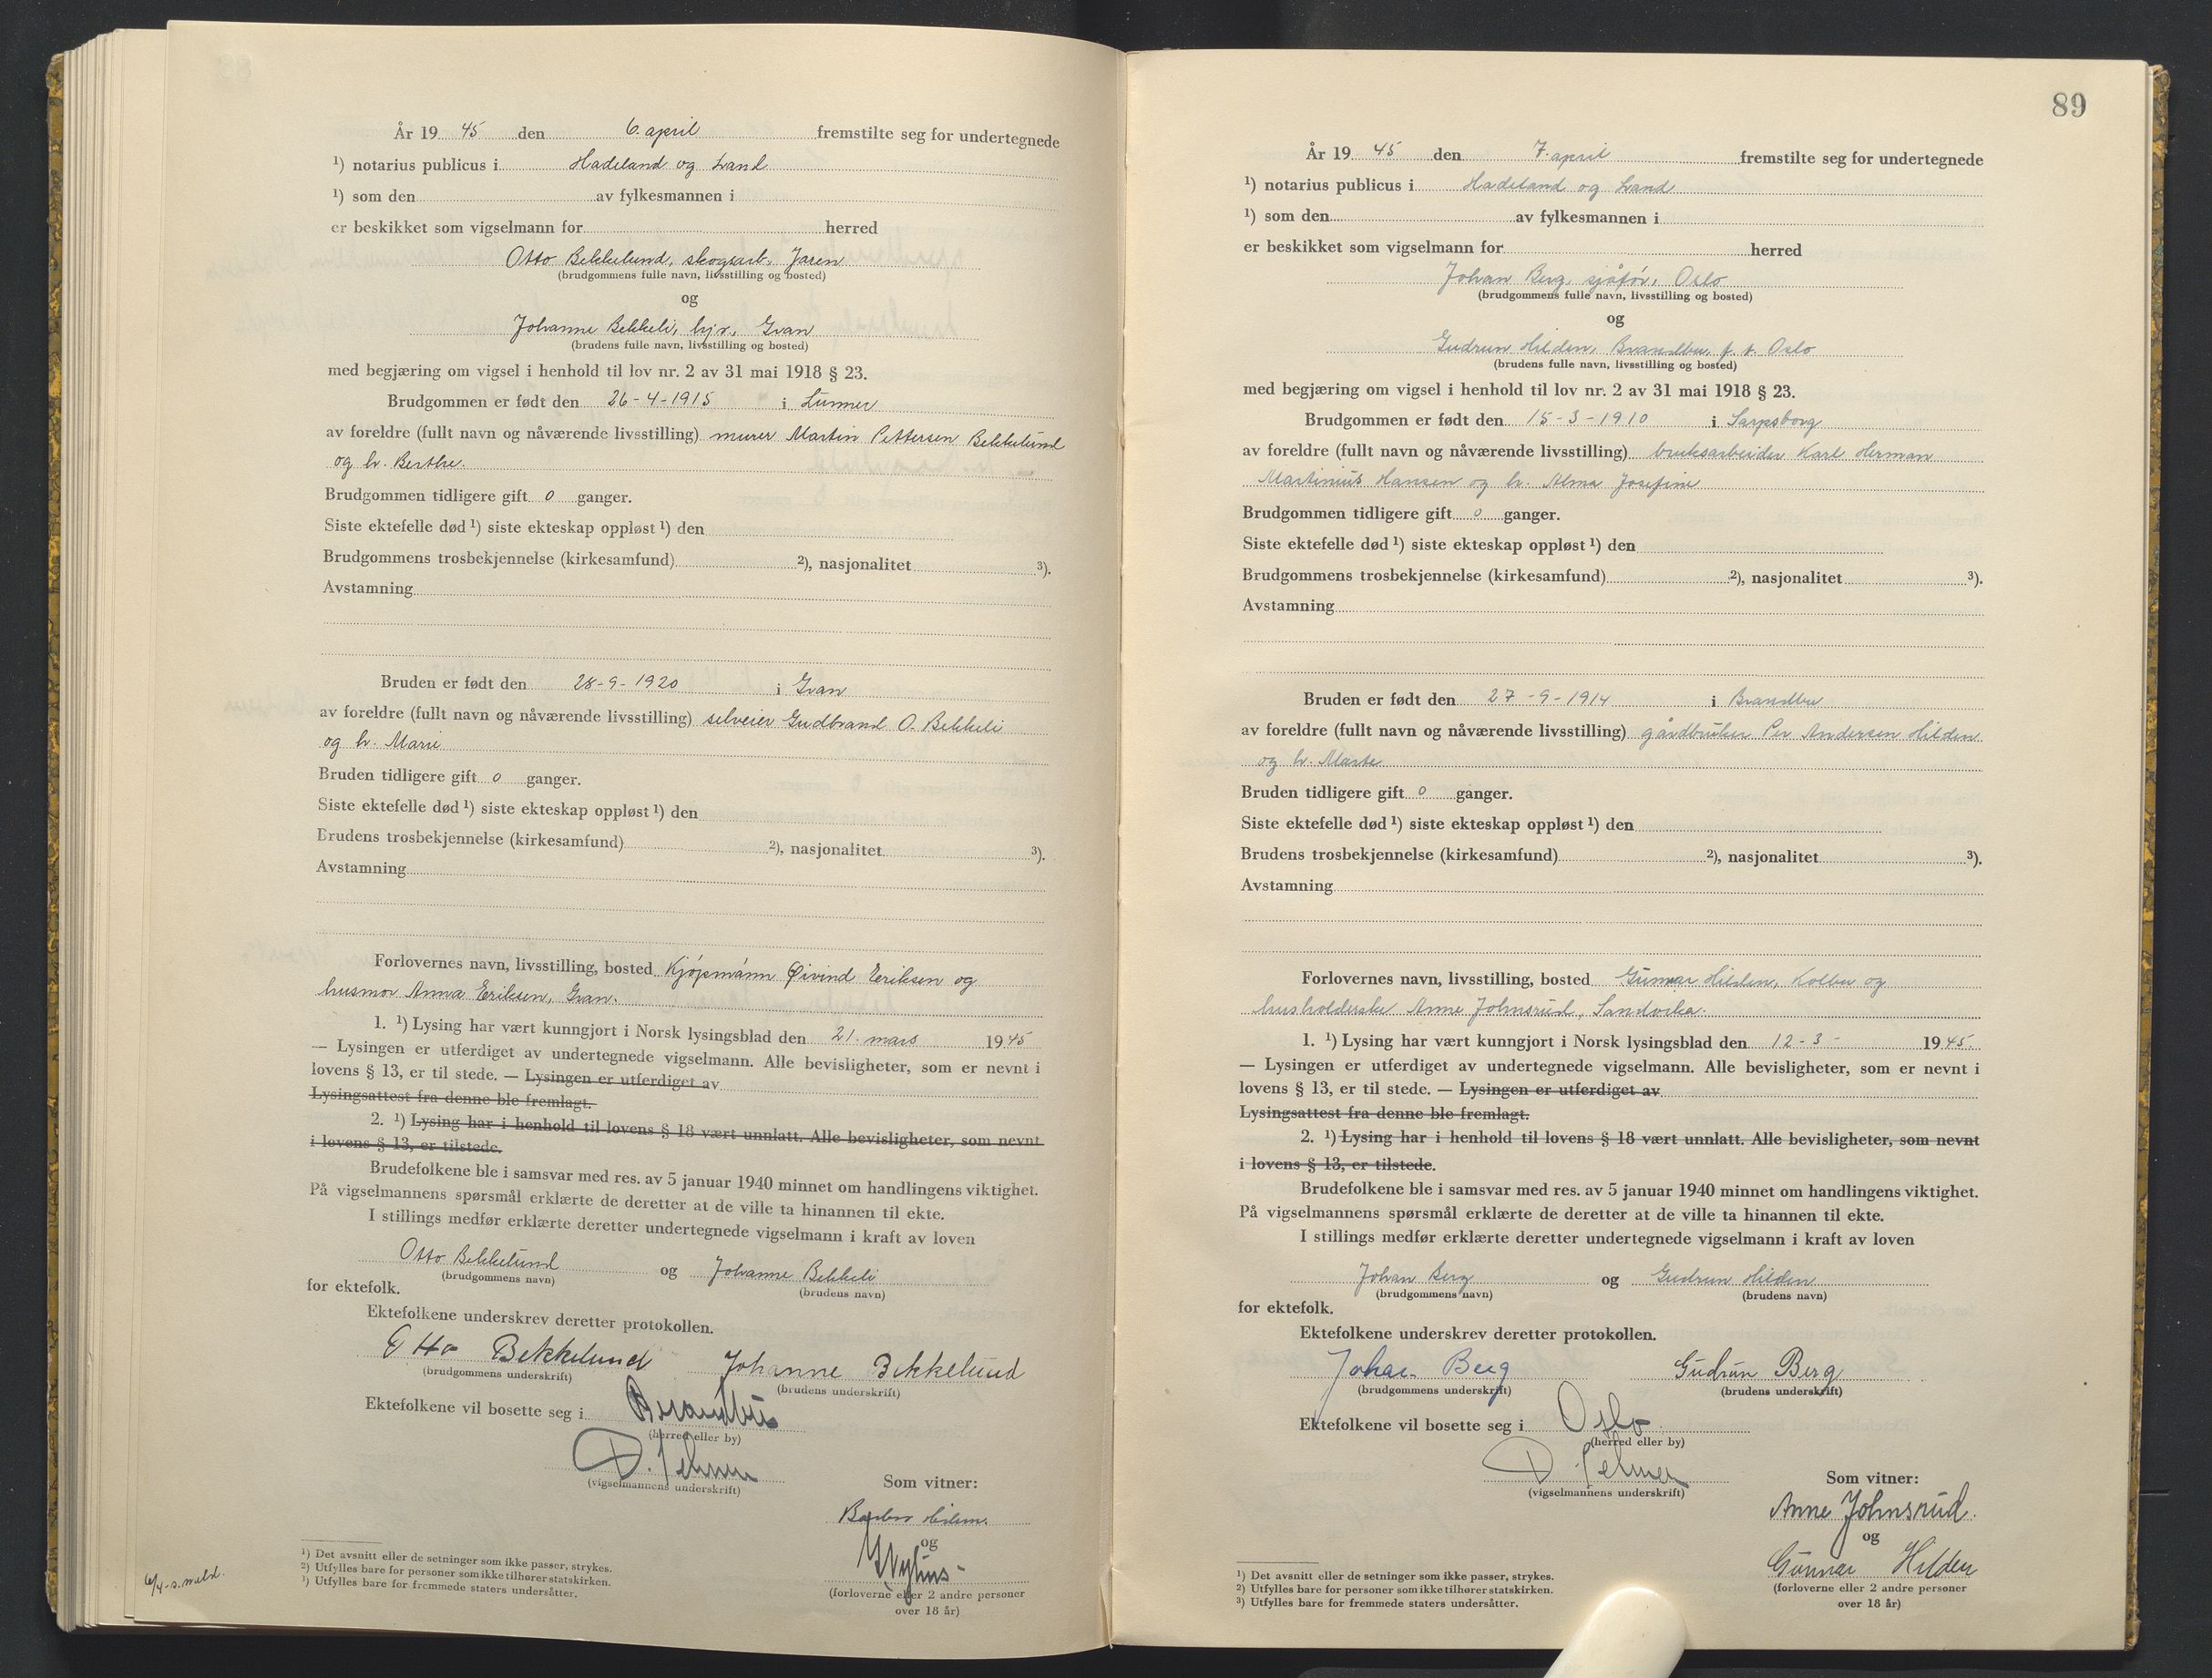 År 19 45 den 6. april fremstilte seg for undertegnede
¹) notarius publicus i Hadeland og Land
¹) som den av fylkesmannen i
er beskikket som vigselmann for herred
Otto Bekkelund, skogsarb. Jaren
(brudgommens fulle navn, livsstilling og bosted)
og
Johanne Bekkeli, hjv., Gran
(brudens fulle navn, livsstilling og bosted)
med begjæring om vigsel i henhold til lov nr. 2 av 31 mai 1918 § 23.
Brudgommen er født den 26-4-1915 i Lunner
av foreldre (fullt navn og nåværende livsstilling) murer Martin Pettersen Bekkelund
og h. Berthe.
Brudgommen tidligere gift 0 ganger.
Siste ektefelle død ¹) siste ekteskap oppløst ¹) den
Brudgommens trosbekjennelse (kirkesamfund) ²), nasjonalitet ³).
Avstamning
Bruden er født den 28-9-1920 i Gran
av foreldre (fullt navn og nåværende livsstilling) selveier Gudbrand O. Bekkeli
og h. Marie
Bruden tidligere gift 0 ganger.
Siste ektefelle død ¹) siste ekteskap oppløst ¹) den
Brudens trosbekjennelse (kirkesamfund) ²), nasjonalitet ³).
Avstamning
Forlovernes navn, livsstilling, bosted Kjøpmann Øivind Eriksen og
husmor Anna Eriksen, Gran.
1. ¹) Lysing har vært kunngjort i Norsk lysingsblad den 21. mars 1945
— Lysingen er utferdiget av undertegnede vigselmann. Alle bevisligheter, som er nevnt i
lovens § 13, er til stede. — Lysingen er utferdiget av
Lysingsattest fra denne ble fremlagt.
2. ¹) Lysing har i henhold til lovens § 18 vært unnlatt. Alle bevisligheter, som nevnt
i lovens § 13, er tilstede.
Brudefolkene ble i samsvar med res. av 5 januar 1940 minnet om handlingens viktighet.
På vigselmannens spørsmål erklærte de deretter at de ville ta hinannen til ekte.
I stillings medfør erklærte deretter undertegnede vigselmann i kraft av loven
Otto Bekkelund og Johanne Bekkeli
(brudgommens navn) (brudens navn)
for ektefolk.
Ektefolkene underskrev deretter protokollen.
Otto Bekkelund Johanne Bekkelund
(brudgommens underskrift) (brudens underskrift)
Ektefolkene vil bosette seg i Brandbu
(herred eller by)
(vigselmannens underskrift)
Som vitner:
og
(forloverne eller 2 andre personer
over 18 år)
¹) Det avsnitt eller de setninger som ikke passer, strykes.
²) Utfylles bare for personer som ikke tilhører statskirken.
³) Utfylles bare for fremmede staters undersåtter.
6/4-s. meld.
89
År 19 45 den 7. april fremstilte seg for undertegnede
¹) notarius publicus i Hadeland og Land
¹) som den av fylkesmannen i
er beskikket som vigselmann for herred
Johan Berg, sjåfør, Oslo
(brudgommens fulle navn, livsstilling og bosted)
og
Gudrun Hilden, Brandbu, f. t. Oslo
(brudens fulle navn, livsstilling og bosted)
med begjæring om vigsel i henhold til lov nr. 2 av 31 mai 1918 § 23.
Brudgommen er født den 15-3-1910 i Sarpsborg
av foreldre (fullt navn og nåværende livsstilling) bruksarbeider Karl Herman
Martinius Hansen og h. Alma Josefine
Brudgommen tidligere gift 0 ganger.
Siste ektefelle død ¹) siste ekteskap oppløst ¹) den
Brudgommens trosbekjennelse (kirkesamfund) ²), nasjonalitet ³).
Avstamning
Bruden er født den 27-9-1914 i Brandbu
av foreldre (fullt navn og nåværende livsstilling) gårdbruker Per Andersen Hilden
og h. Marte
Bruden tidligere gift 0 ganger.
Siste ektefelle død ¹) siste ekteskap oppløst ¹) den
Brudens trosbekjennelse (kirkesamfund) ²), nasjonalitet ³).
Avstamning
Forlovernes navn, livsstilling, bosted Gunnar Hilden, Kolbu og
husholderske Anne Johnsrud, Sandvika.
1. ¹) Lysing har vært kunngjort i Norsk lysingsblad den 12-3- 1945.
— Lysingen er utferdiget av undertegnede vigselmann. Alle bevisligheter, som er nevnt i
lovens § 13, er til stede. — Lysingen er utferdiget av
Lysingsattest fra denne ble fremlagt.
2. ¹) Lysing har i henhold til lovens § 18 vært unnlatt. Alle bevisligheter, som nevnt
i lovens § 13, er tilstede.
Brudefolkene ble i samsvar med res. av 5 januar 1940 minnet om handlingens viktighet.
På vigselmannens spørsmål erklærte de deretter at de ville ta hinannen til ekte.
I stillings medfør erklærte deretter undertegnede vigselmann i kraft av loven
Johan Berg og Gudrun Hilden
(brudgommens navn) (brudens navn)
for ektefolk.
Ektefolkene underskrev deretter protokollen.
Johan Berg Gudrun Berg
(brudgommens underskrift) (brudens underskrift)
Ektefolkene vil bosette seg i Oslo
(herred eller by)
(vigselmannens underskrift)
Som vitner:
Anne Johnsrud.
og
Gunnar Hilden
(forloverne eller 2 andre personer
over 18 år)
¹) Det avsnitt eller de setninger som ikke passer, strykes.
²) Utfylles bare for personer som ikke tilhører statskirken.
³) Utfylles bare for fremmede staters undersåtter.